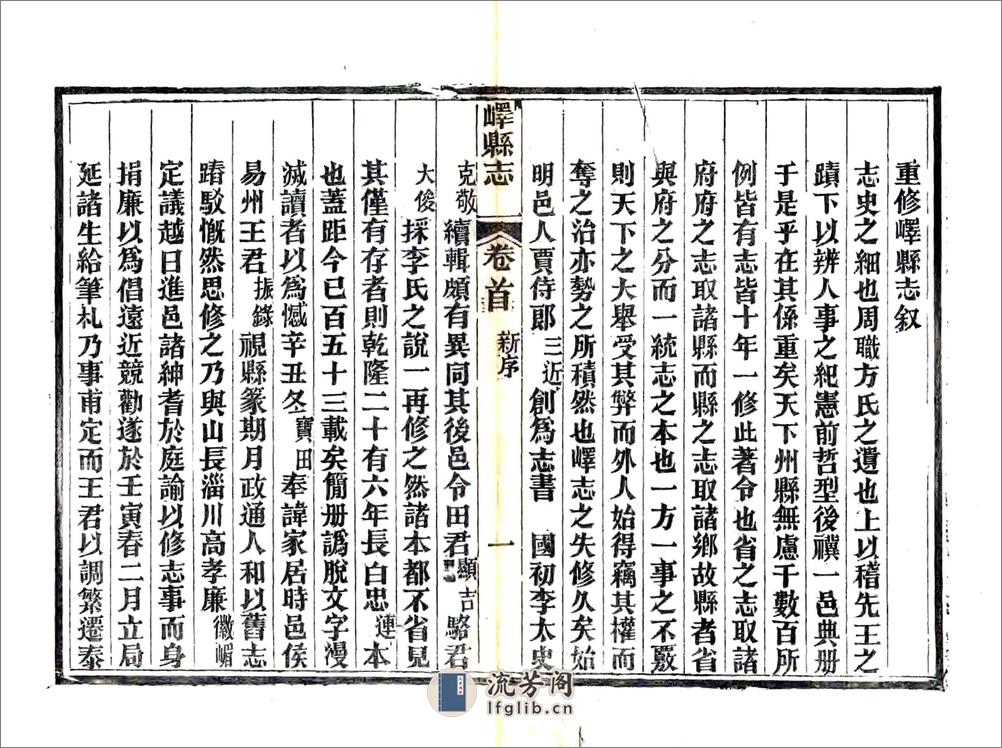 重修嶧縣志叙
志史之細也周職方氏之遺也上以稽先王之
蹟下以辨人事之紀憲前哲型後禩一邑典册
于是乎在其係重矣天下州縣無慮千數百所
例皆有志皆十年一修此著令也省之志取諸
府府之志取諸縣而縣之志取諸鄉故縣者省
與府之分而一統志之本也一方一事之不覈
則天下之大舉受其弊而外人始得竊其權而
奪之治亦勢之所積然也嶧志之失修久矣始
明邑人賈侍郎三近創為志書 國初李太史
嶧縣志 卷首 新序 一
克敬續輯頗有異同其後邑令田君顯吉駱君
大俊採李氏之說一再修之然諸本都不省見
其僅有存者則乾隆二十有六年長白忠璉本
也蓋距今已百五十三載矣簡册譌脫文字漫
滅讀者以為憾辛丑冬寶田奉諱家居時邑侯
易州王君振錄視縣篆期月政通人和以舊志
踳駁慨然思修之乃與山長淄川高孝廉徽嵋
定議越日進邑諸紳耆於庭諭以修志事而身
捐廉以為倡遠近競勸遂於壬寅春二月立局
延諸生給筆札乃事甫定而王君以調繁遷泰
流芳阁
lfglib.cn